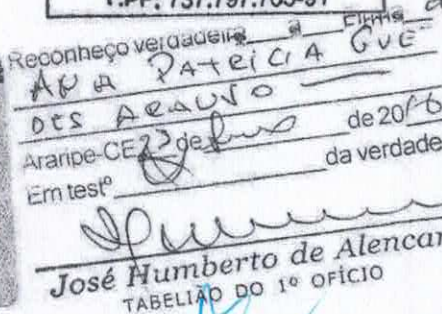 Reconheço verdadeira a firma d
ANA PATRICIA GUE
DES ARAUJO
Araripe-CE 23 de de 2016
Em testº da verdade
José Humberto de Alencar
TABELIÃO DO 1º OFÍCIO